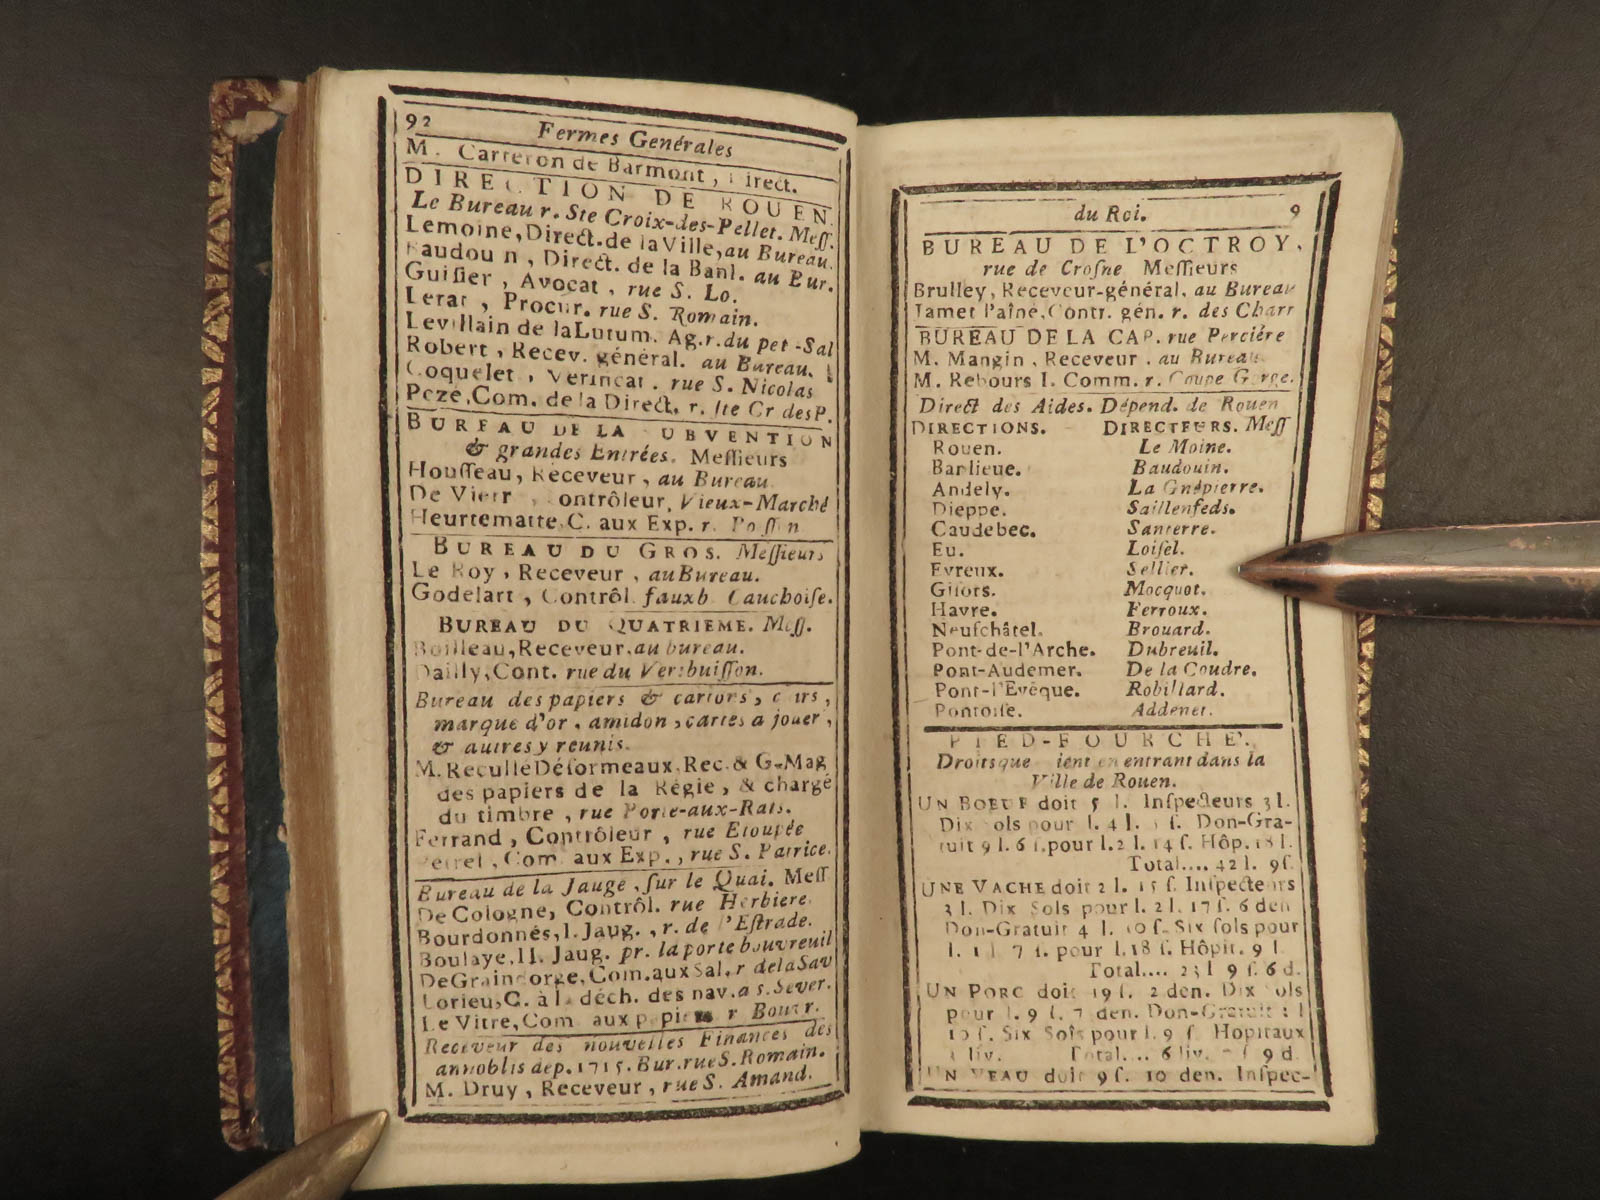 92 Fermes Generales
M. Carteron de Barmont, Direct.
DIRECTION DE ROUEN.
Le Bureau r. Ste Croix-des-Pellet. Meſſ.
Lemoine, Direct. de la Ville, au Bureau.
Baudouin, Direct. de la Banl. au Bur.
Guiſier, Avocat, rue S. Lo.
Lerat, Procur. rue S. Romain.
Levillain de la Lutum. Ag. r. du pet-Sal
Robert, Recev. général. au Bureau.
Coquelet, Verincat. rue S. Nicolas
Pezé, Com. de la Direct. r. ſte Cr des P.
BUREAU DE LA UBVENTION
& grandes Entrées. Meſſieurs
Houſſeau, Receveur, au Bureau
De Vietr ontrôleur, Vieux-Marché
Heurtematte, C. aux Exp. r.
BUREAU DU GROS. Meſſieurs
Le Roy, Receveur, au Bureau.
Godelart, Contrôl. fauxb Cauchoiſe.
BUREAU DU QUATRIEME. Meſſ.
Boilleau, Receveur, au bureau.
Dailly, Cont. rue du Vertbuiſſon.
Bureau des papiers & cartons, c irs,
marque d'or, amidon, cartes a jouer,
& autres y reunis.
M. Recullé Déformeaux, Rec. & G-Mag
des papiers de la Régie, & chargé
du timbre, rue Porte-aux-Rats.
Ferrand, Contrôleur, rue Etoupée
Com. aux Exp., rue S. Patrice.
Bureau de la Jauge, ſur le Quai. Meſſ
De Cologne, Contrôl. rue Herbiere
Bourdonnés, I. Jaug., r. de l'Eſtrade.
Boulaye, II. Jaug. pr. la porte bouvreuil
De Graindorge, Com. aux Sal. r de la Sav
Lorieu, C. à la déch. des nav. a s. Sever.
Le Vitre, Com aux papiers r Bouvr.
Receveur des nouvelles Finances des
annoblis dep. 1715. Bur. rue S. Romain.
M. Druy, Receveur, rue S. Amand.
du Roi. 9
BUREAU DE L'OCTROY.
rue de Croſne Meſſieurs
Brulley, Receveur-général. au Bureau
Jamet l'aîné, Contr. gén. r. des Charr
BUREAU DE LA CAP. rue Perciére
M. Mangin, Receveur. au Bureau
M. Rebours I. Comm. r. Coupe Gorge.
Direct des Aides. Dépend. de Rouen
DIRECTIONS. DIRECTEURS. Meſſ
Rouen. Le Moine.
Banlieue. Baudouin.
Andely. La Gnépierre.
Dieppe. Saillenfeds.
Caudebec. Santerre.
Eu. Loiſel.
Evreux. Sellier.
Giſors. Mocquot.
Havre. Ferroux.
Neufchâtel. Brouard.
Pont-de-l'Arche. Dubreuil.
Pont-Audemer. De la Coudre.
Pont-l'Evêque. Robillard.
Pontoiſe. Addenet.
PIED-FOURCHÉ.
Droits que ient en entrant dans la
Ville de Rouen.
UN BOEUF doit 5 l. Inſpecteurs 3 l.
Dix ſols pour l. 4 l. ſ. Don-Gra-
tuit 9 l. 6 ſ. pour l. 2 l. 14 ſ. Hôp. 18 l.
Total.... 42 l. 9 ſ.
UNE VACHE doit 2 l. 15 ſ. Inſpecteurs
3 l. Dix Sols pour l. 2 l. 17 ſ. 6 den
Don-Gratuit 4 l. 10 ſ. Six ſols pour
l. 1 l 7 ſ. pour l. 18 ſ. Hôpit. 9 l.
Total.... 23 l 9 ſ. 6 d.
UN PORC doit 19 ſ. 2 den. Dix ſols
pour l. 9 ſ. 7 den. Don-Gratuit 1 l
10 ſ. Six Sols pour l. 9 ſ Hopitaux
liv. Total.... 6 liv. ſ 9 d.
UN VEAU doit 9 ſ. 10 den. Inſpec-